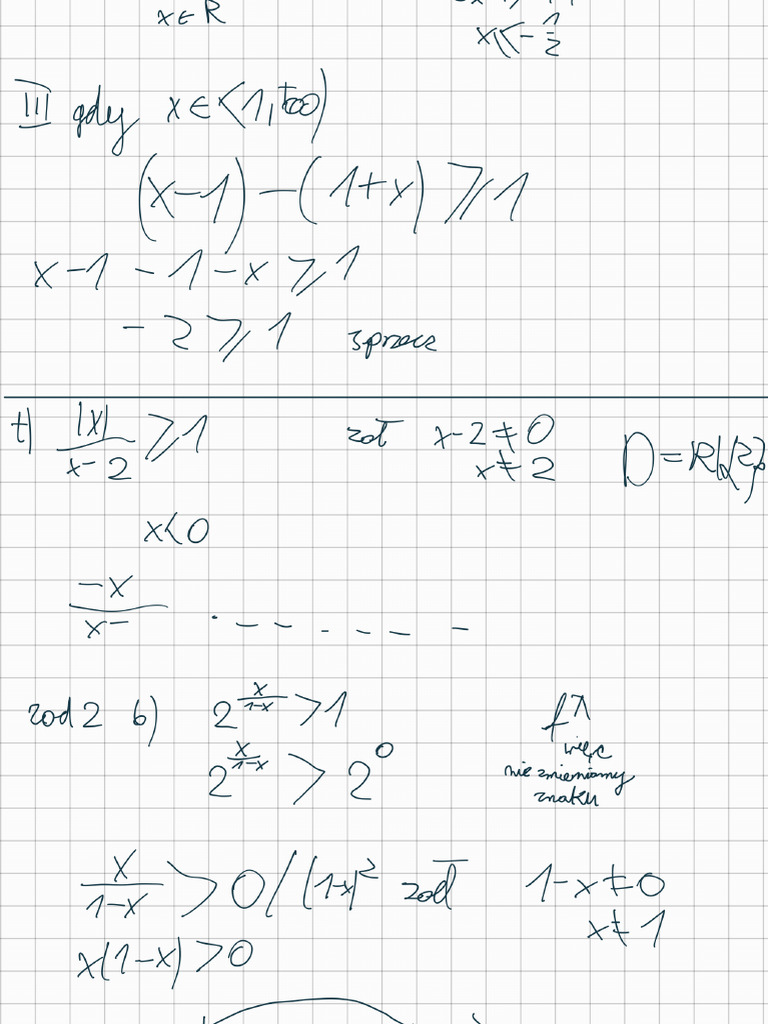 x∈R
x<-1/2
III gdy x∈<1,+∞)
(x-1)-(1+x)⩾1
x-1-1-x⩾1
-2⩾1 sprzecz
f) |x|/(x-2) ⩾1 zał x-2≠0 D=R\{2}
x≠2
x<0
-x/x-
zad 2 b) 2^(x/(1-x)) >1 f↗
2^(x/(1-x)) > 2^0 więc
nie zmieniamy
znaku
x/(1-x) >0 /(1-x)² zał 1-x≠0
x≠1
x(1-x)>0